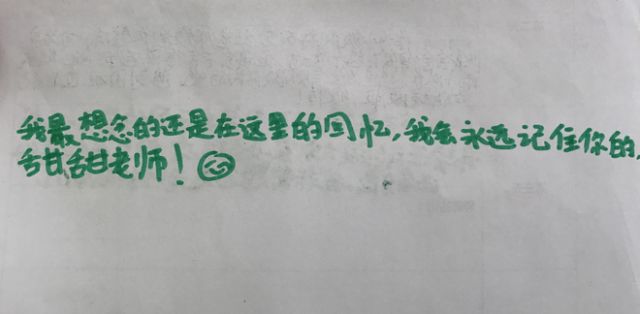 我最想念的还是在这里的回忆,我会永远记住你的,
甜甜老师!